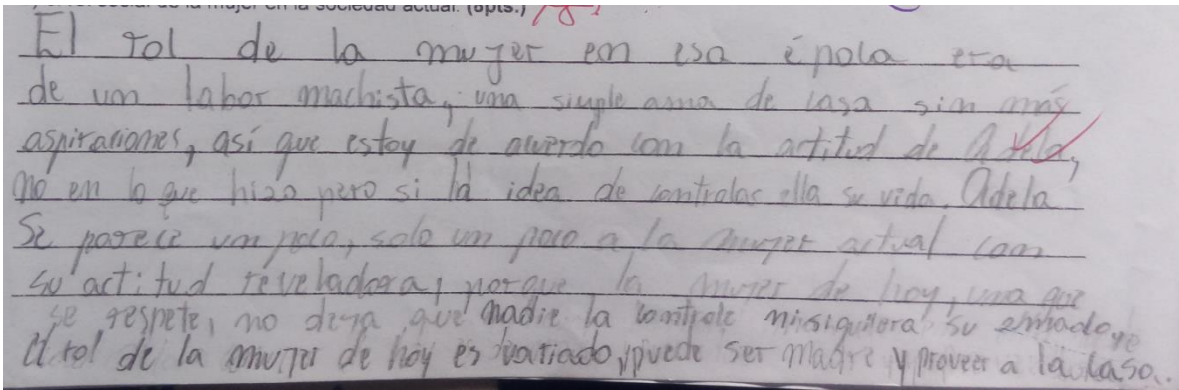 el rol social de la mujer en la sociedad actual. (6pts.)
El rol de la mujer en esa época era
de un labor machista, una simple ama de casa sin más
aspiraciones, así que estoy de acuerdo con la actitud de Adela,
no en lo que hizo pero si la idea de controlar ella su vida. Adela
se parece un poco, solo un poco a la mujer actual con
su actitud reveladora, porque la mujer de hoy, una que
se respete, no deja que nadie la controle nisiquiera su amado,
el rol de la mujer de hoy es variado, puede ser madre y proveer a la casa.